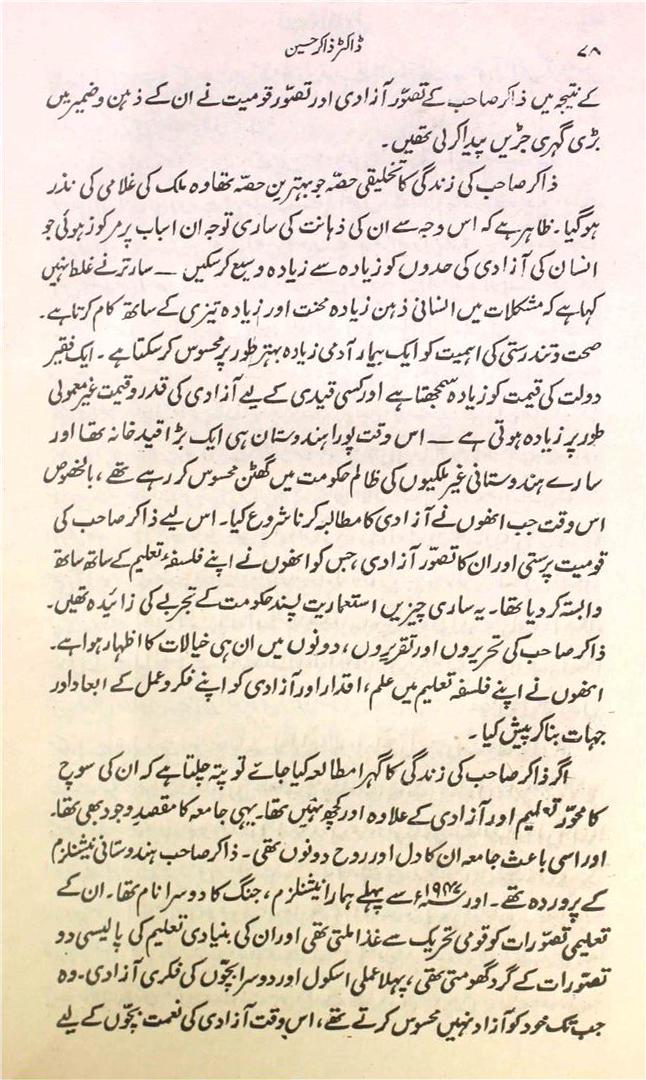 ۷۸
ڈاکٹر ذاکر حسین
کے نتیجہ میں ذاکر صاحب کے تصوّر آزادی اور تصوّر قومیت نے ان کے ذہن و ضمیر میں
بڑی گہری جڑیں پیدا کر لی تھیں۔
ذاکر صاحب کی زندگی کا تخلیقی حصّہ جو بہترین حصّہ تھا وہ ملک کی غلامی کی نذر
ہو گیا۔ ظاہر ہے کہ اس وجہ سے ان کی ذہانت کی ساری توجہ ان اسباب پر مرکوز ہوئی جو
انسان کی آزادی کی حدوں کو زیادہ سے زیادہ وسیع کر سکیں — سارتر نے غلط نہیں
کہا ہے کہ مشکلات میں انسانی ذہن زیادہ محنت اور زیادہ تیزی کے ساتھ کام کرتا ہے۔
صحت و تندرستی کی اہمیت کو ایک بیمار آدمی زیادہ بہتر طور پر محسوس کر سکتا ہے۔ ایک فقیر
دولت کی قیمت کو زیادہ سمجھتا ہے اور کسی قیدی کے لیے آزادی کی قدر و قیمت غیر معمولی
طور پر زیادہ ہوتی ہے — اس وقت پورا ہندوستان ہی ایک بڑا قید خانہ تھا اور
سارے ہندوستانی غیر ملکیوں کی ظالم حکومت میں گھٹن محسوس کر رہے تھے، بالخصوص
اس وقت جب انھوں نے آزادی کا مطالبہ کرنا شروع کیا۔ اس لیے ذاکر صاحب کی
قومیت پرستی اور ان کا تصوّر آزادی، جس کو انھوں نے اپنے فلسفۂ تعلیم کے ساتھ ساتھ
وابستہ کر دیا تھا۔ یہ ساری چیزیں استعماریت پسند حکومت کے تجربے کی زائیدہ تھیں۔
ذاکر صاحب کی تحریروں اور تقریروں، دونوں میں ان ہی خیالات کا اظہار ہوا ہے۔
انھوں نے اپنے فلسفہ تعلیم میں علم، اقدار اور آزادی کو اپنے فکر و عمل کے ابعاد اور
جہات بنا کر پیش کیا۔
اگر ذاکر صاحب کی زندگی کا گہرا مطالعہ کیا جائے تو پتہ چلتا ہے کہ ان کی سوچ
کا محوّر تعلیم اور آزادی کے علاوہ اور کچھ نہیں تھا۔ یہی جامعہ کا مقصدِ وجود بھی تھا۔
اور اسی باعث جامعہ ان کا دل اور روح دونوں تھی۔ ذاکر صاحب ہندوستانی نیشنلزم
کے پروردہ تھے۔ اور ۱۹۴۷ء سے پہلے ہمارا نیشنلزم، جنگ کا دوسرا نام تھا۔ ان کے
تعلیمی تصوّرات کو قومی تحریک سے غذا ملتی تھی اور ان کی بنیادی تعلیم کی پالیسی دو
تصوّرات کے گرد گھومتی تھی، پہلا عملی اسکول اور دوسرا بچّوں کی فکری آزادی۔ وہ
جب تک خود کو آزاد نہیں محسوس کرتے تھے، اس وقت آزادی کی نعمت بچّوں کے لیے